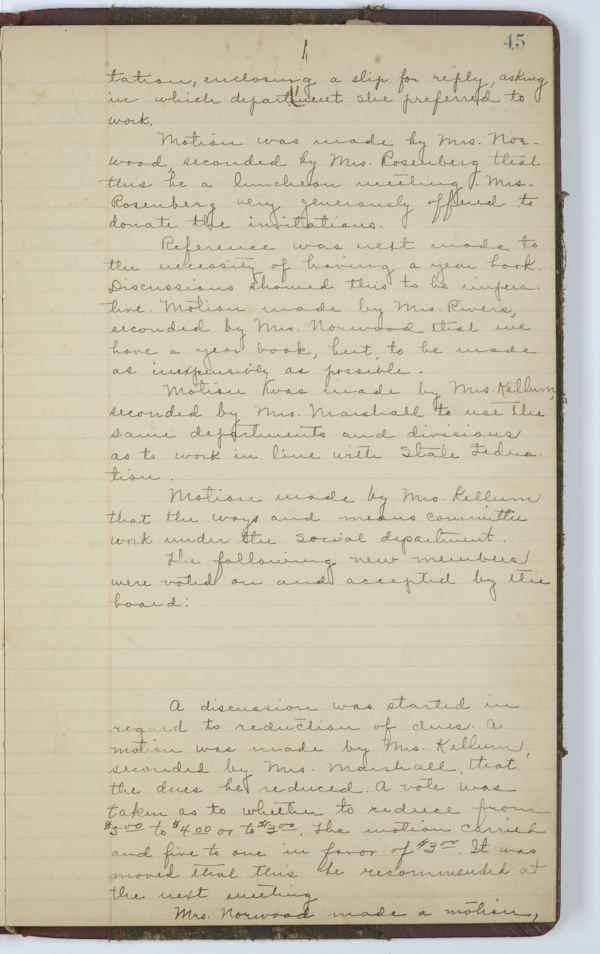 45
tation, enclosing a slip for reply, asking
in which department she preferred to
work.
Motion was made by Mrs. Nor-
wood, seconded by Mrs. Rosenberg that
this be a luncheon meeting. Mrs.
Rosenberg very generously offered to
donate the invitations.
Reference was next made to
the necessity of having a year book.
Discussions showed this to be impera-
tive. Motion made by Mrs. Rivers,
seconded by Mrs. Norwood that we
have a year book, but, to be made
as inexpensively as possible.
Motion was made by Mrs. Kellum,
seconded by Mrs. Marshall to use the
same departments and divisions
as to work in line with State Federa-
tion.
Motion made by Mrs. Kellum
that the ways and means committee
work under the social department.
The following new members
were voted on and accepted by the
board:
A discussion was started in
regard to reduction of dues. A
motion was made by Mrs. Kellum,
seconded by Mrs. Marshall, that
the dues be reduced. A vote was
taken as to whether to reduce from
$5.00 to $4.00 or to $3.00. The motion carried
and five to one in favor of $3.00. It was
moved that this be recommended at
the next meeting
Mrs. Norwood made a motion,